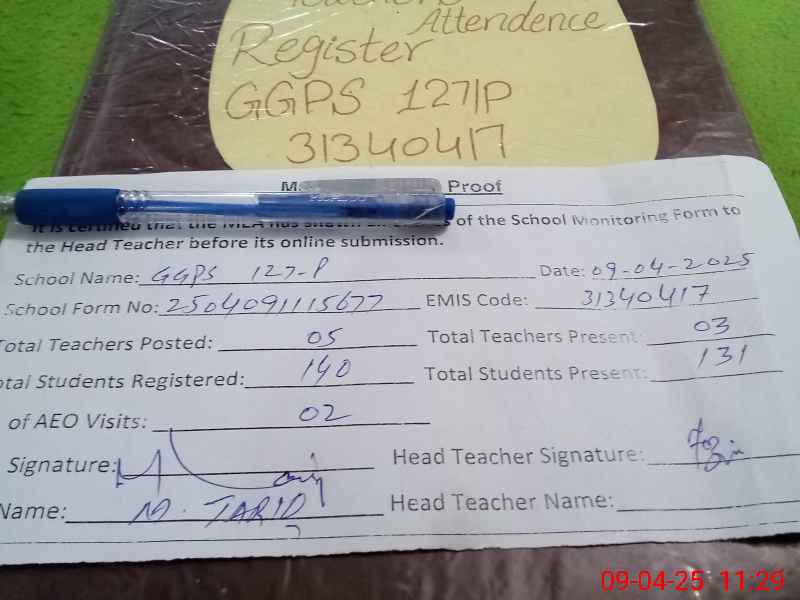 Teachers
Attendence
Register
GGPS 127/P
31340417
Proof
It is certified that the MEA has shown of the School Monitoring Form to
the Head Teacher before its online submission.
School Name: GGPS 127-P Date: 09-04-2025
School Form No: 2504091115677 EMIS Code: 31340417
Total Teachers Posted: 05 Total Teachers Present: 03
Total Students Registered: 140 Total Students Present: 131
of AEO Visits: 02
Signature: Head Teacher Signature:
Name: M. TARIQ Head Teacher Name:
09-04-25 11:29